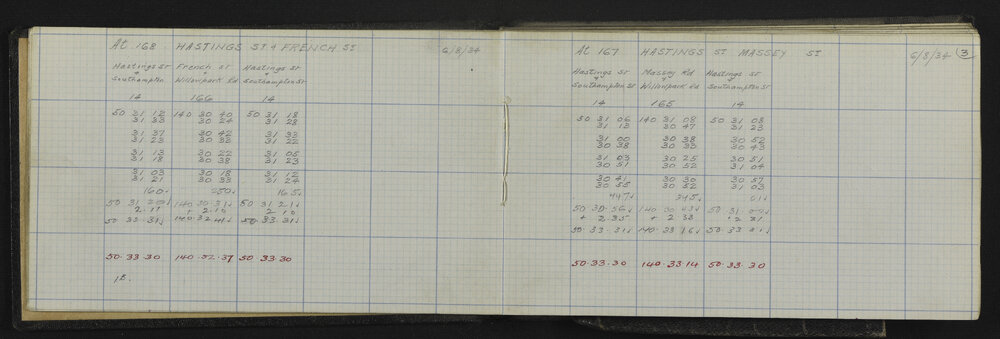 At 168 HASTINGS ST & FRENCH ST 6/8/34
Hastings St French St Hastings St
Southampton Willowpark Rd Southampton St
14 166 14
50 31 12 140 30 40 50 31 18
31 33 30 24 31 28
31 37 30 42 31 33
31 23 30 33 31 22
31 13 30 22 31 05
31 18 30 38 31 23
31 03 30 18 31 12
31 21 30 33 31 24
160 250 165
50 31 20 140 30 31 50 31 21
2 11 + 2.10 2 10
50 33.31 140.32 41 50.33.31
50.33.30 140.32.37 50 33.30
At 167 HASTINGS ST MASSEY ST 6/8/34 3
Hastings St Massey Rd Hastings St
Southampton St Willowpark Rd Southampton St
14 165 14
50 31 06 140 31 08 50 31 08
31 13 30 47 31 23
31 00 30 38 30 52
30 38 30 33 30 43
31 03 30 25 30 51
30 51 30 52 31 04
30 41 30 30 30 57
30 55 30 52 31 03
447 345
50 30 56 140 30 43 50 31
+ 2 35 + 2 33
50.33.31 140.33 16 50.33
50.33.30 140.33.14 50.33.30